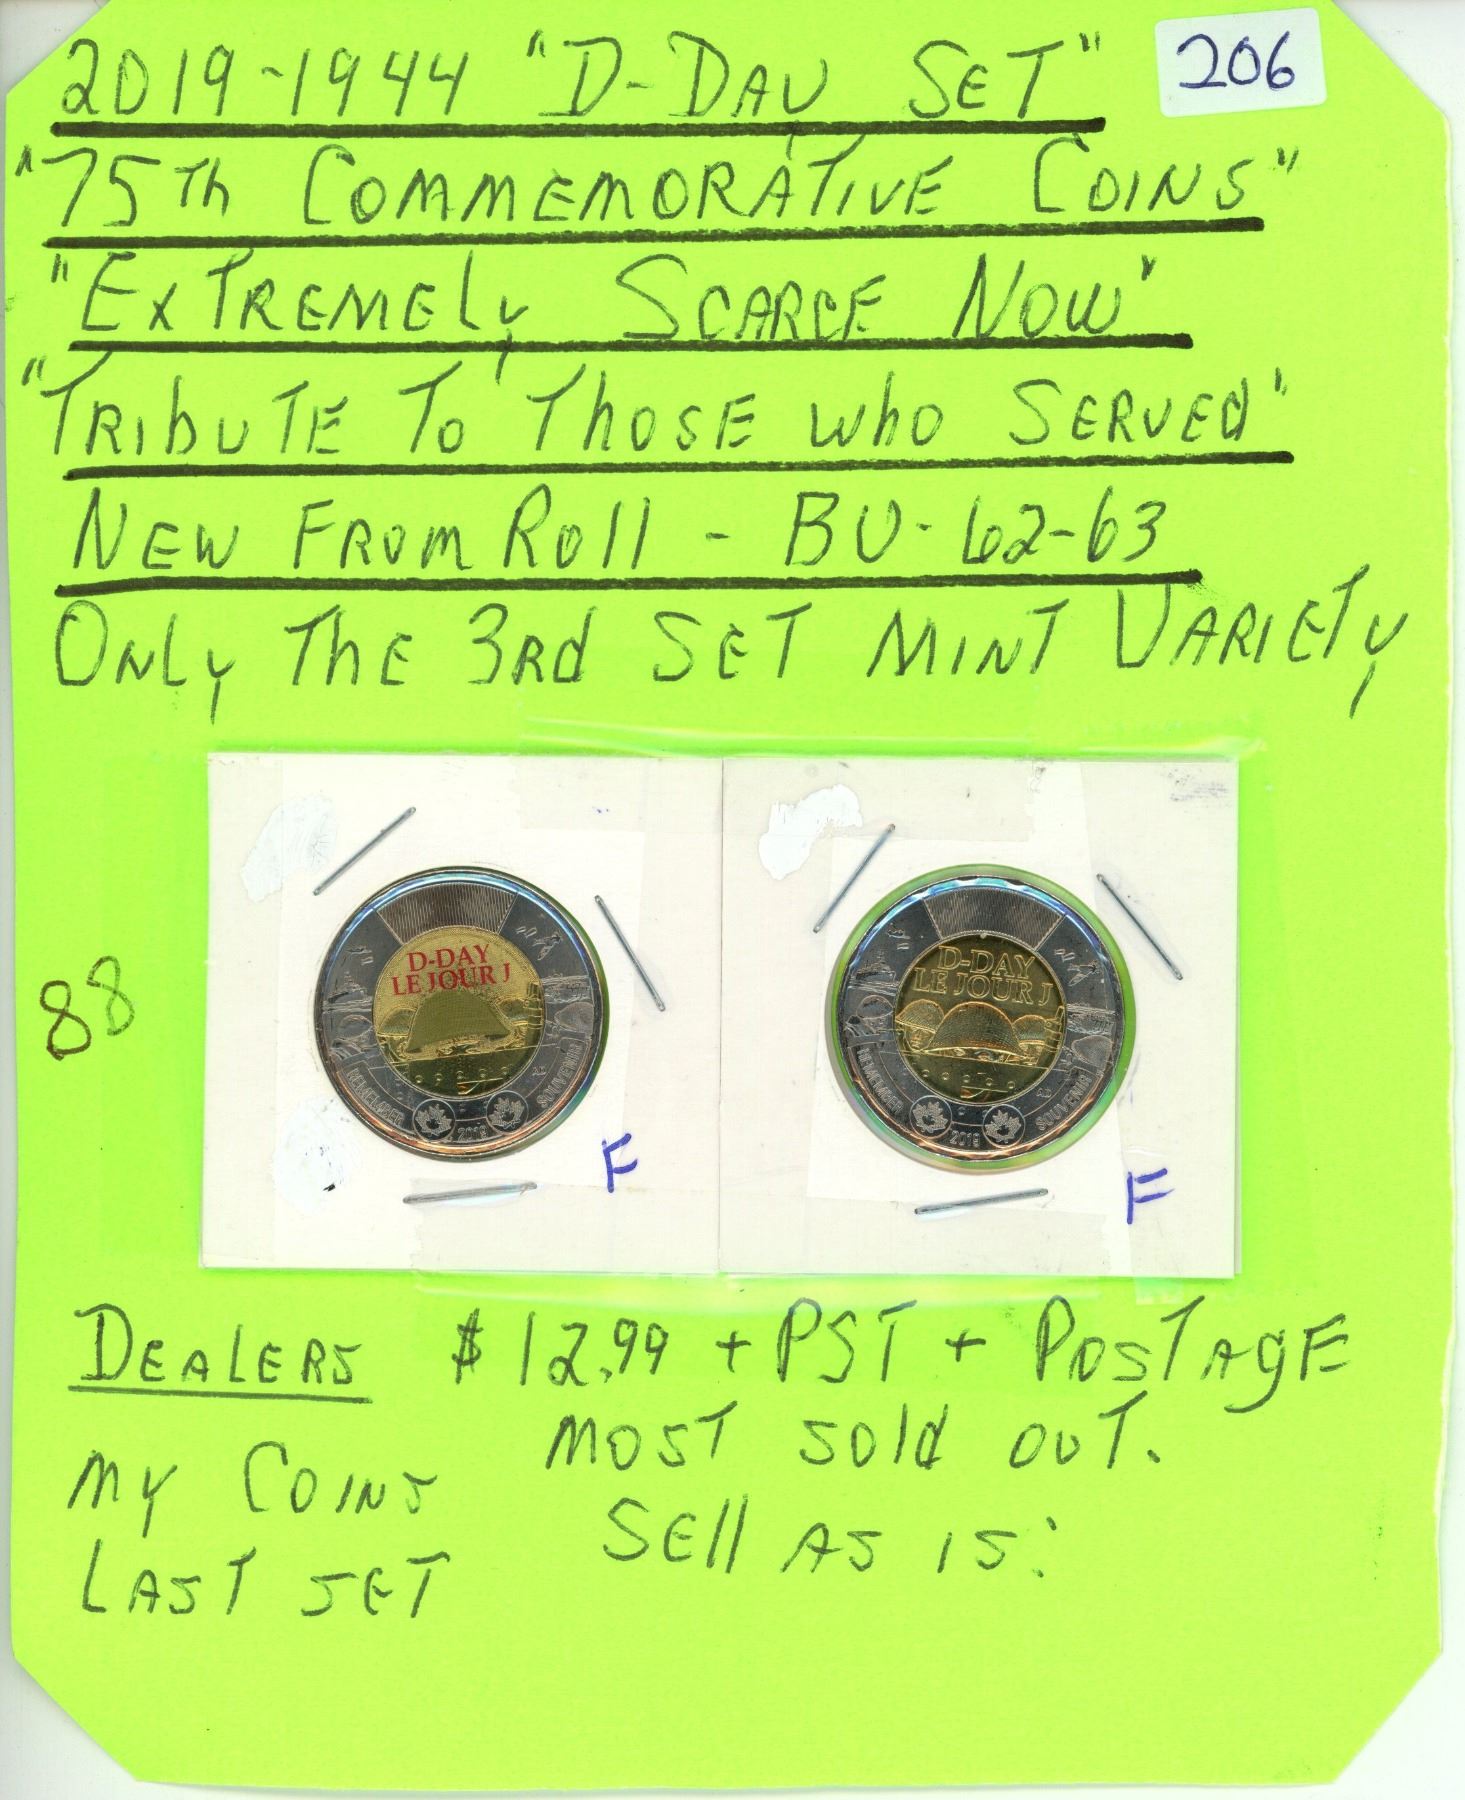 2019-1944 "D-DAY SET" 206
"75Th COMMEMORATIVE COINS"
"ExTREMELy SCARCE NOW"
"TRIbUTE To Those who SERVEd"
NEW FROM Roll - BU-62-63
ONLy The 3Rd SET MINT VARIETy
D-DAY
LE JOUR J
REMEMBER
2019
SOUVENIR
F
D-DAY
LE JOUR J
REMEMBER
2019
SOUVENIR
F
88
DEALERS $12.99 + PST + POSTAgE
MOST Sold OUT.
My COINS
SEll AS IS:
LAST SET